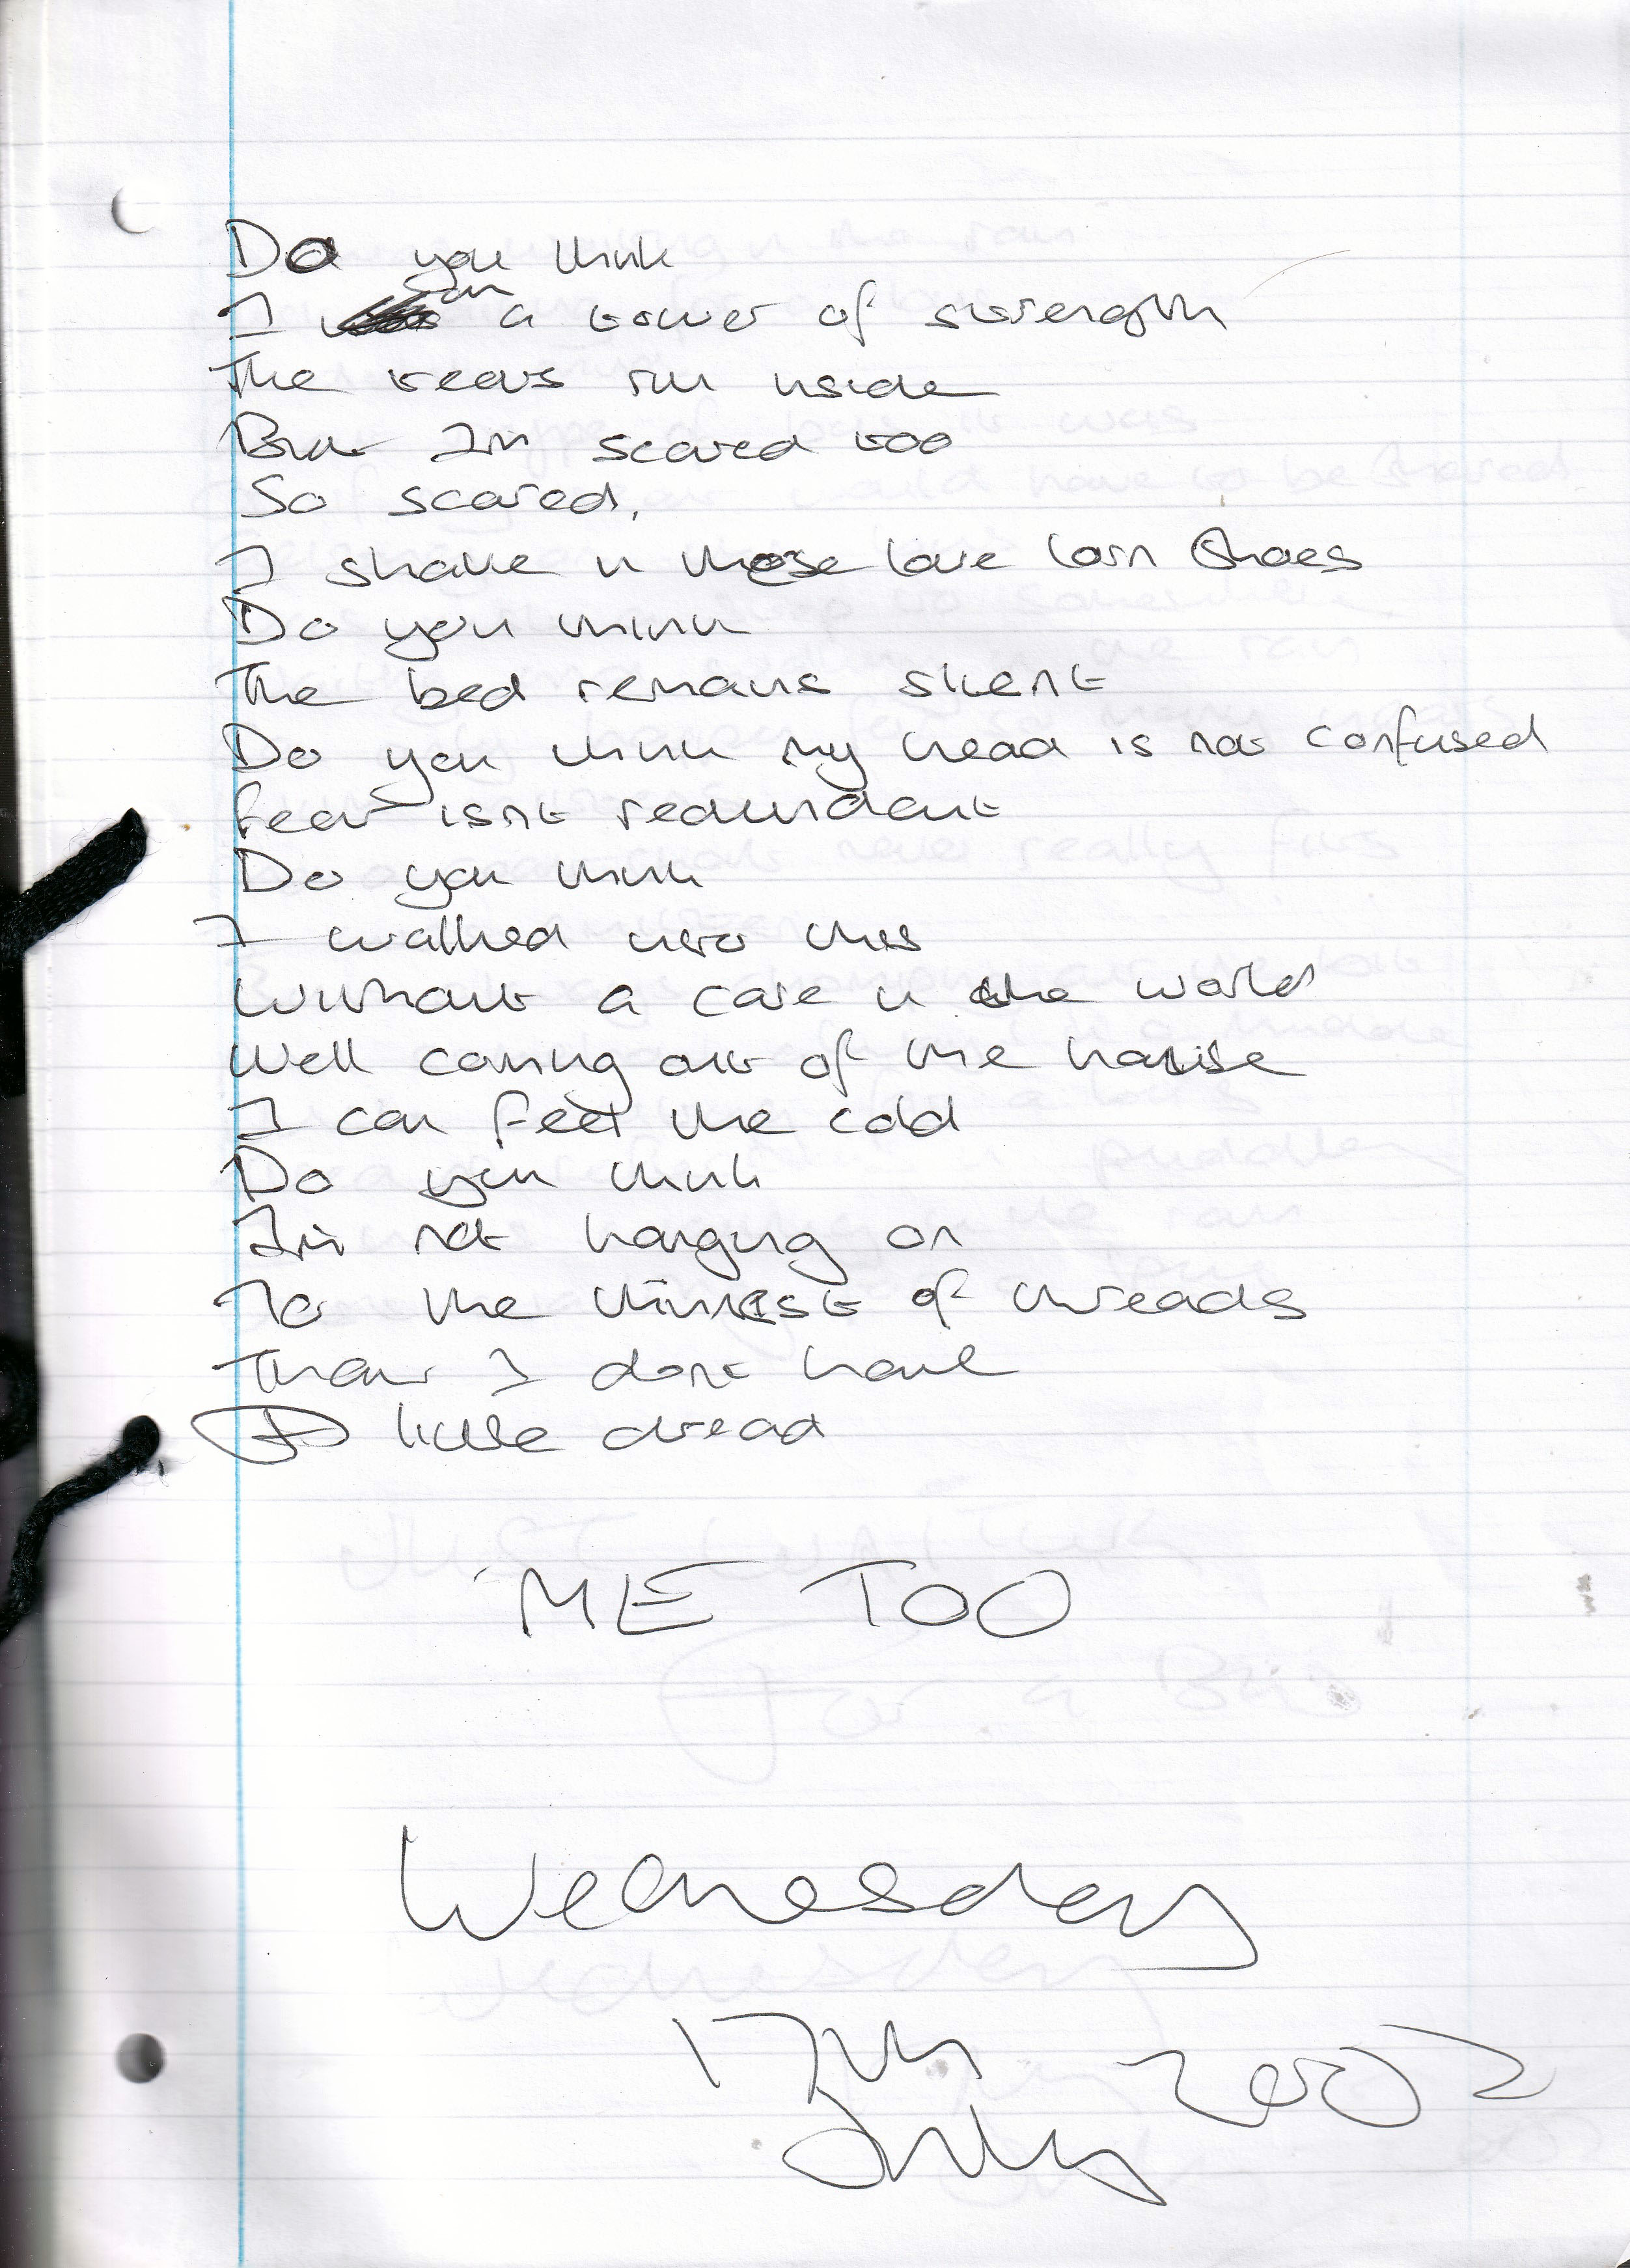 Do you think
I am a tower of strength
The tears run inside
But Im scared too
So scared,
I shake in these love lorn shoes
Do you think
The bed remains silent
Do you think my head is not confused
Fear isnt redundant
Do you think
I walked into this
Without a care in the world
Well coming out of the house
I can feel the cold
Do you think
Im not hanging on
To the thinnest of threads
That I dont have
A little dread
ME TOO
Wednesday
17th July 2002